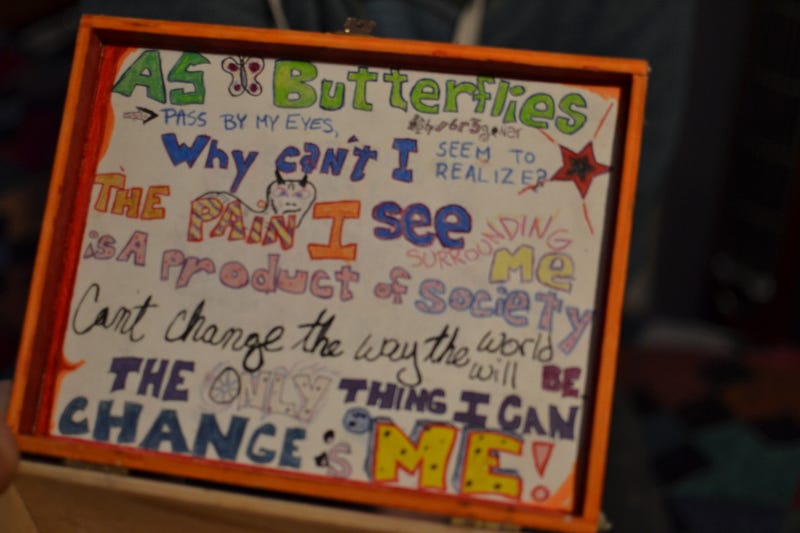 AS Butterflies
PASS BY MY EYES,
Why can't I SEEM TO
REALIZE?
THE PAIN I see
SURROUNDING
Me
is A Product of Society
Can't change the way the world
will BE
THE ONLY THING I CAN
CHANGE is ME!